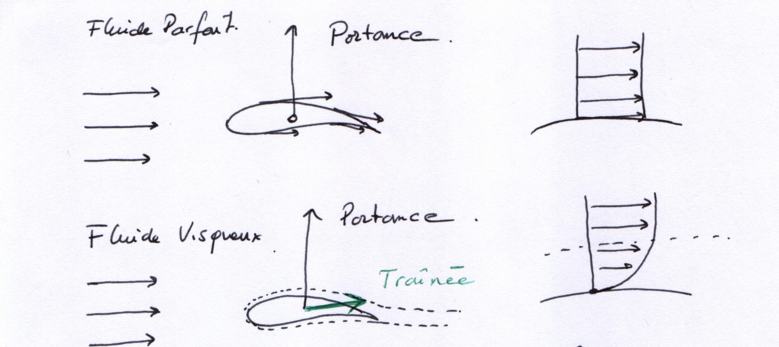 Fluide Parfait.
Portance.
Fluide Visqueux.
Portance.
Traînée